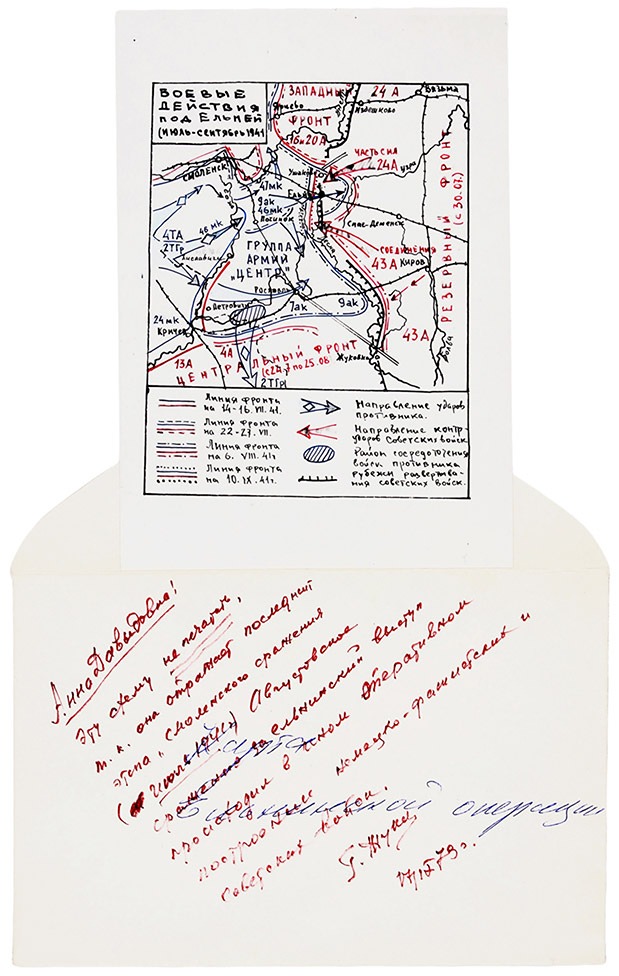 БОЕВЫЕ
ДЕЙСТВИЯ
ПОД ЕЛЬНЕЙ
(ИЮЛЬ-СЕНТЯБРЬ 1941
ЗАПАДНЫЙ
ФРОНТ
24 А
ВЯЗЬМА
Ярцево
16 и 20 А
СМОЛЕНСК
Ушаково
ЧАСТЬ СИЛ
24А
Угра
47 мк
9 ак
46 мк
Починок
46 мк
4ТА
2ТГр
Спас-Деменск
СОЕДИНЕНИЯ
43 А
КИРОВ
РЕЗЕРВНЫЙ ФРОНТ
(с 30.07.)
ГРУППА
АРМИЙ
"ЦЕНТР"
Рославль
7ак
9ак
24 мк
Кричев
Петровичи
43 А
13А
4А
ЦЕНТРАЛЬНЫЙ ФРОНТ
(с 24.7 по 25.08
2ТГр
Жуковка
Линия фронта
на 14-16. VII. 41.
Линия фронта
на 22-27. VII.
Линия фронта
на 6. VIII. 41г
Линия фронта
на 10. IX. 41г.
Направление ударов
противника.
Направление контр-
ударов Советских войск.
Район сосредоточения
войск противника
рубежи развертыва-
ния советских войск.
Анна Давыдовна!
Эту схему не печатать,
т. к. она отражает последний
этап „Смоленского сражения
(июль 1941) Августовское
сражение за ельнинский выступ
проходили в ином оперативном
построении немецко-фашистских и
советских войск.
Г. Жуков
Карта
Ельнинской операции